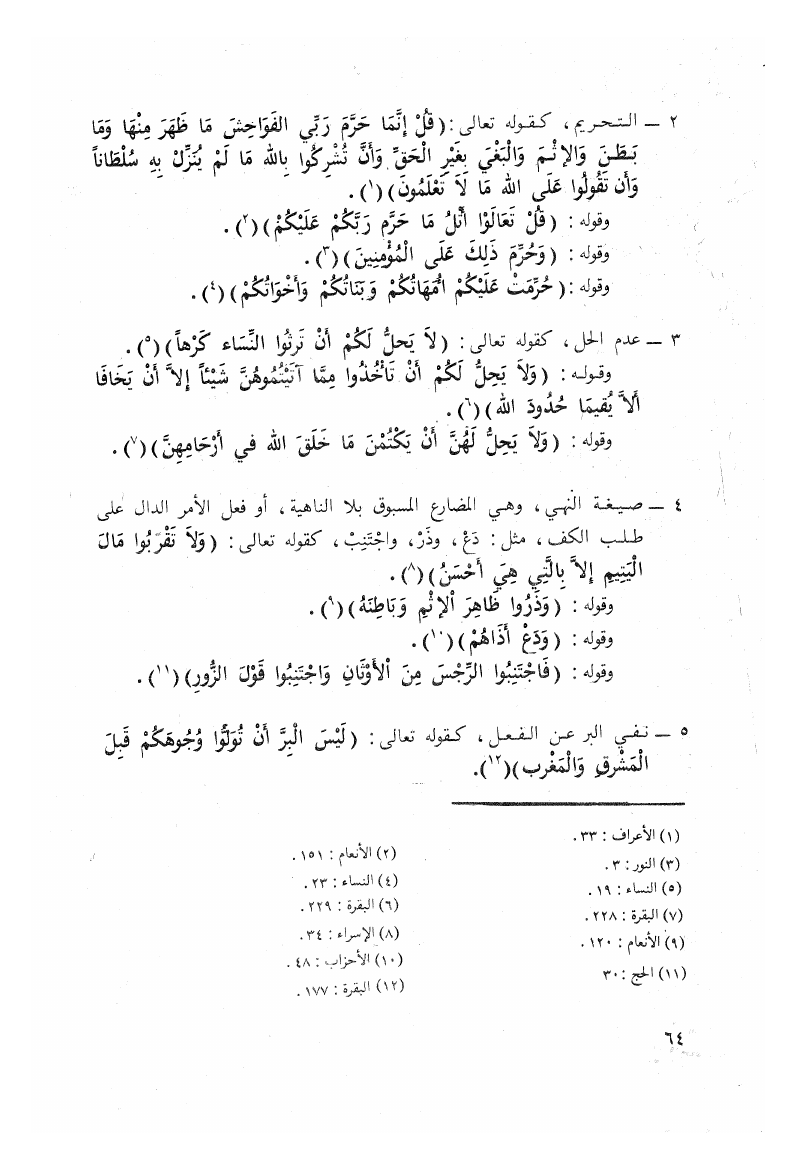 ٢ ــ التحريم، كقوله تعالى: (قُلْ إنَّمَا حَرَّمَ رَبِّي الفَوَاحِشَ مَا ظَهَرَ مِنْهَا وَمَا
بَطَنَ وَالإِثْمَ وَالْبَغْيَ بِغَيْرِ الْحَقِّ وَأَنَّ تُشْرِكُوا بِالله مَا لَمْ يُنَزِّلْ بِهِ سُلْطَاناً
وَأَن تَقُولُوا عَلَى الله مَا لاَ تَعْلَمُونَ)(١).
وقوله: (قُلْ تَعَالَوْا أَتْلُ مَا حَرَّم رَبَّكُمْ عَلَيْكُمْ)(٢).
وقوله: (وَحُرِّمَ ذَلِكَ عَلَى الْمُؤْمِنِينَ)(٣).
وقوله: (حُرِّمَتْ عَلَيْكُمْ أُمَّهَاتُكُمْ وَبَنَاتُكُمْ وَأَخْوَاتُكُمْ)(٤).
٣ ــ عدم الحل، كقوله تعالى: (لاَ يَحلُّ لَكُمْ أَنْ تَرثُوا النِّسَاء كَرْهاً)(٥).
وقوله: (وَلاَ يَحِلُّ لَكُمْ أَنْ تَأْخُذُوا مِمَّا آتَيْتُمُوهُنَّ شَيْئاً إلاَّ أَنْ يَخَافَا
أَلاَّ يُقيمَا حُدُودَ الله)(٦).
وقوله: (وَلاَ يَحِلُّ لَهُنَّ أَنْ يَكْتُمْنَ مَا خَلَقَ الله في أَرْحَامِهِنَّ)(٧).
٤ ــ صيغة النهي، وهي المضارع المسبوق بلا الناهية، أو فعل الأمر الدال على
طلب الكف، مثل: دَعْ، وذَرْ، واجْتَنِبْ، كقوله تعالى: (وَلاَ تَقْرَبُوا مَالَ
الْيَتِيمِ إلاَّ بِالَّتِي هِيَ أَحْسَنُ)(٨).
وقوله: (وَذَرُوا ظَاهِرَ الْإِثْمِ وَبَاطِنَهُ)(٩).
وقوله: (وَدَعْ أَذَاهُمْ)(١٠).
وقوله: (فَاجْتَنِبُوا الرِّجْسَ مِنَ الأَوْثَانِ وَاجْتَنِبُوا قَوْلَ الزُّورِ)(١١).
٥ ــ نفي البر عن الفعل، كقوله تعالى: (لَيْسَ الْبِرَّ أَنْ تُوَلُّوا وُجُوهَكُمْ قَبِلَ
الْمَشْرقِ وَالْمَغْرب)(١٢).
(١) الأعراف: ٣٣.
(٢) الأنعام: ١٥١.
(٣) النور: ٣.
(٤) النساء: ٢٣.
(٥) النساء: ١٩.
(٦) البقرة: ٢٢٩.
(٧) البقرة: ٢٢٨.
(٨) الإسراء: ٣٤.
(٩) الأنعام: ١٢٠.
(١٠) الأحزاب: ٤٨.
(١١) الحج: ٣٠
(١٢) البقرة: ١٧٧.
٦٤